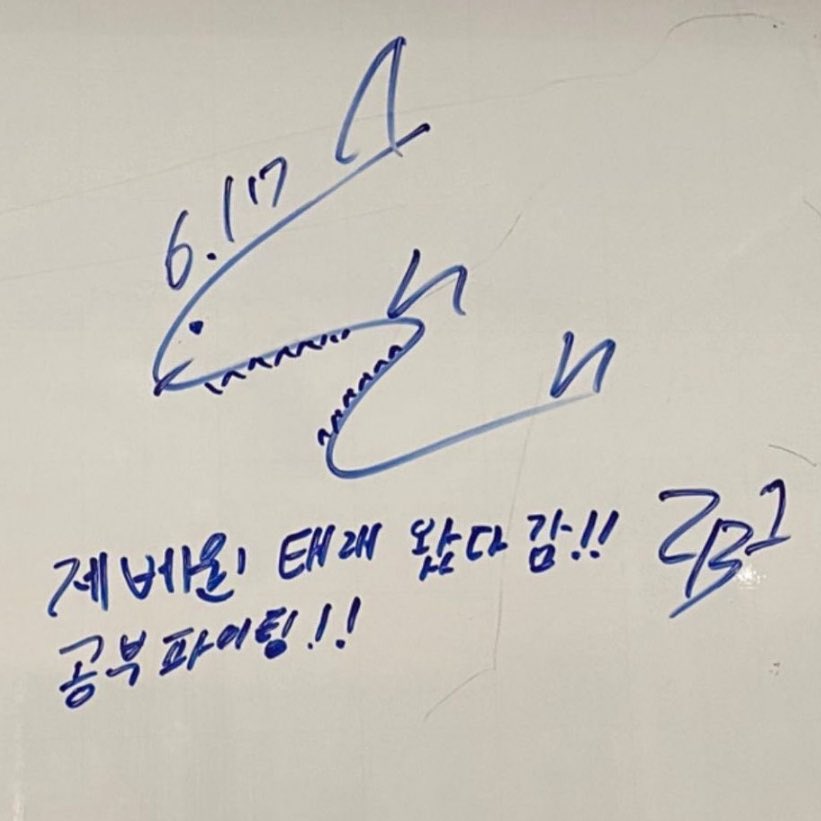 6.17
제베원 태래 왔다 감!! ZB1
공부 파이팅!!